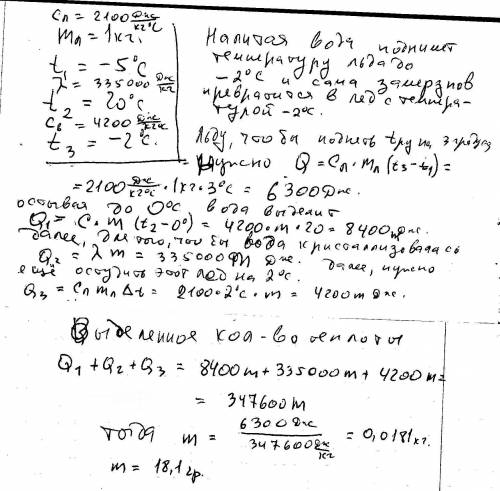 cл = 2100 Дж/кг°C
mл = 1кг.
t₁ = -5°C
λ = 335000 Дж/кг
t₂ = 20°C
cв = 4200 Дж/кг°C
t₃ = -2°C.
Налитая вода поднимет
температуру льда до
-2°C и сама замерзнов
превратится в лед с темпера-
турой -2°C.
Льду, чтобы поднять t-ру на 3 градуса
нужно Q = Cл · mл (t₃ - t₁) =
= 2100 Дж/кг°C · 1кг · 3°C = 6300 Дж.
остывая до 0°C вода выделит
Q₁ = C · m (t₂ - 0°) = 4200 · m · 20 = 8400m Дж.
далее, для того, что бы вода кристаллизовалась
Q₂ = λ m = 335000 m Дж. далее, нужно
ещё остудить этот лед на 2°C.
Q₃ = Cл mл Δt = 2100 · 2°C · m = 4200m Дж.
Выделенное кол-во теплоты
Q₁ + Q₂ + Q₃ = 8400m + 335000m + 4200m =
= 347600m
тогда m = 6300 Дж / 347600 Дж/кг = 0,0181 кг.
m = 18,1 гр.